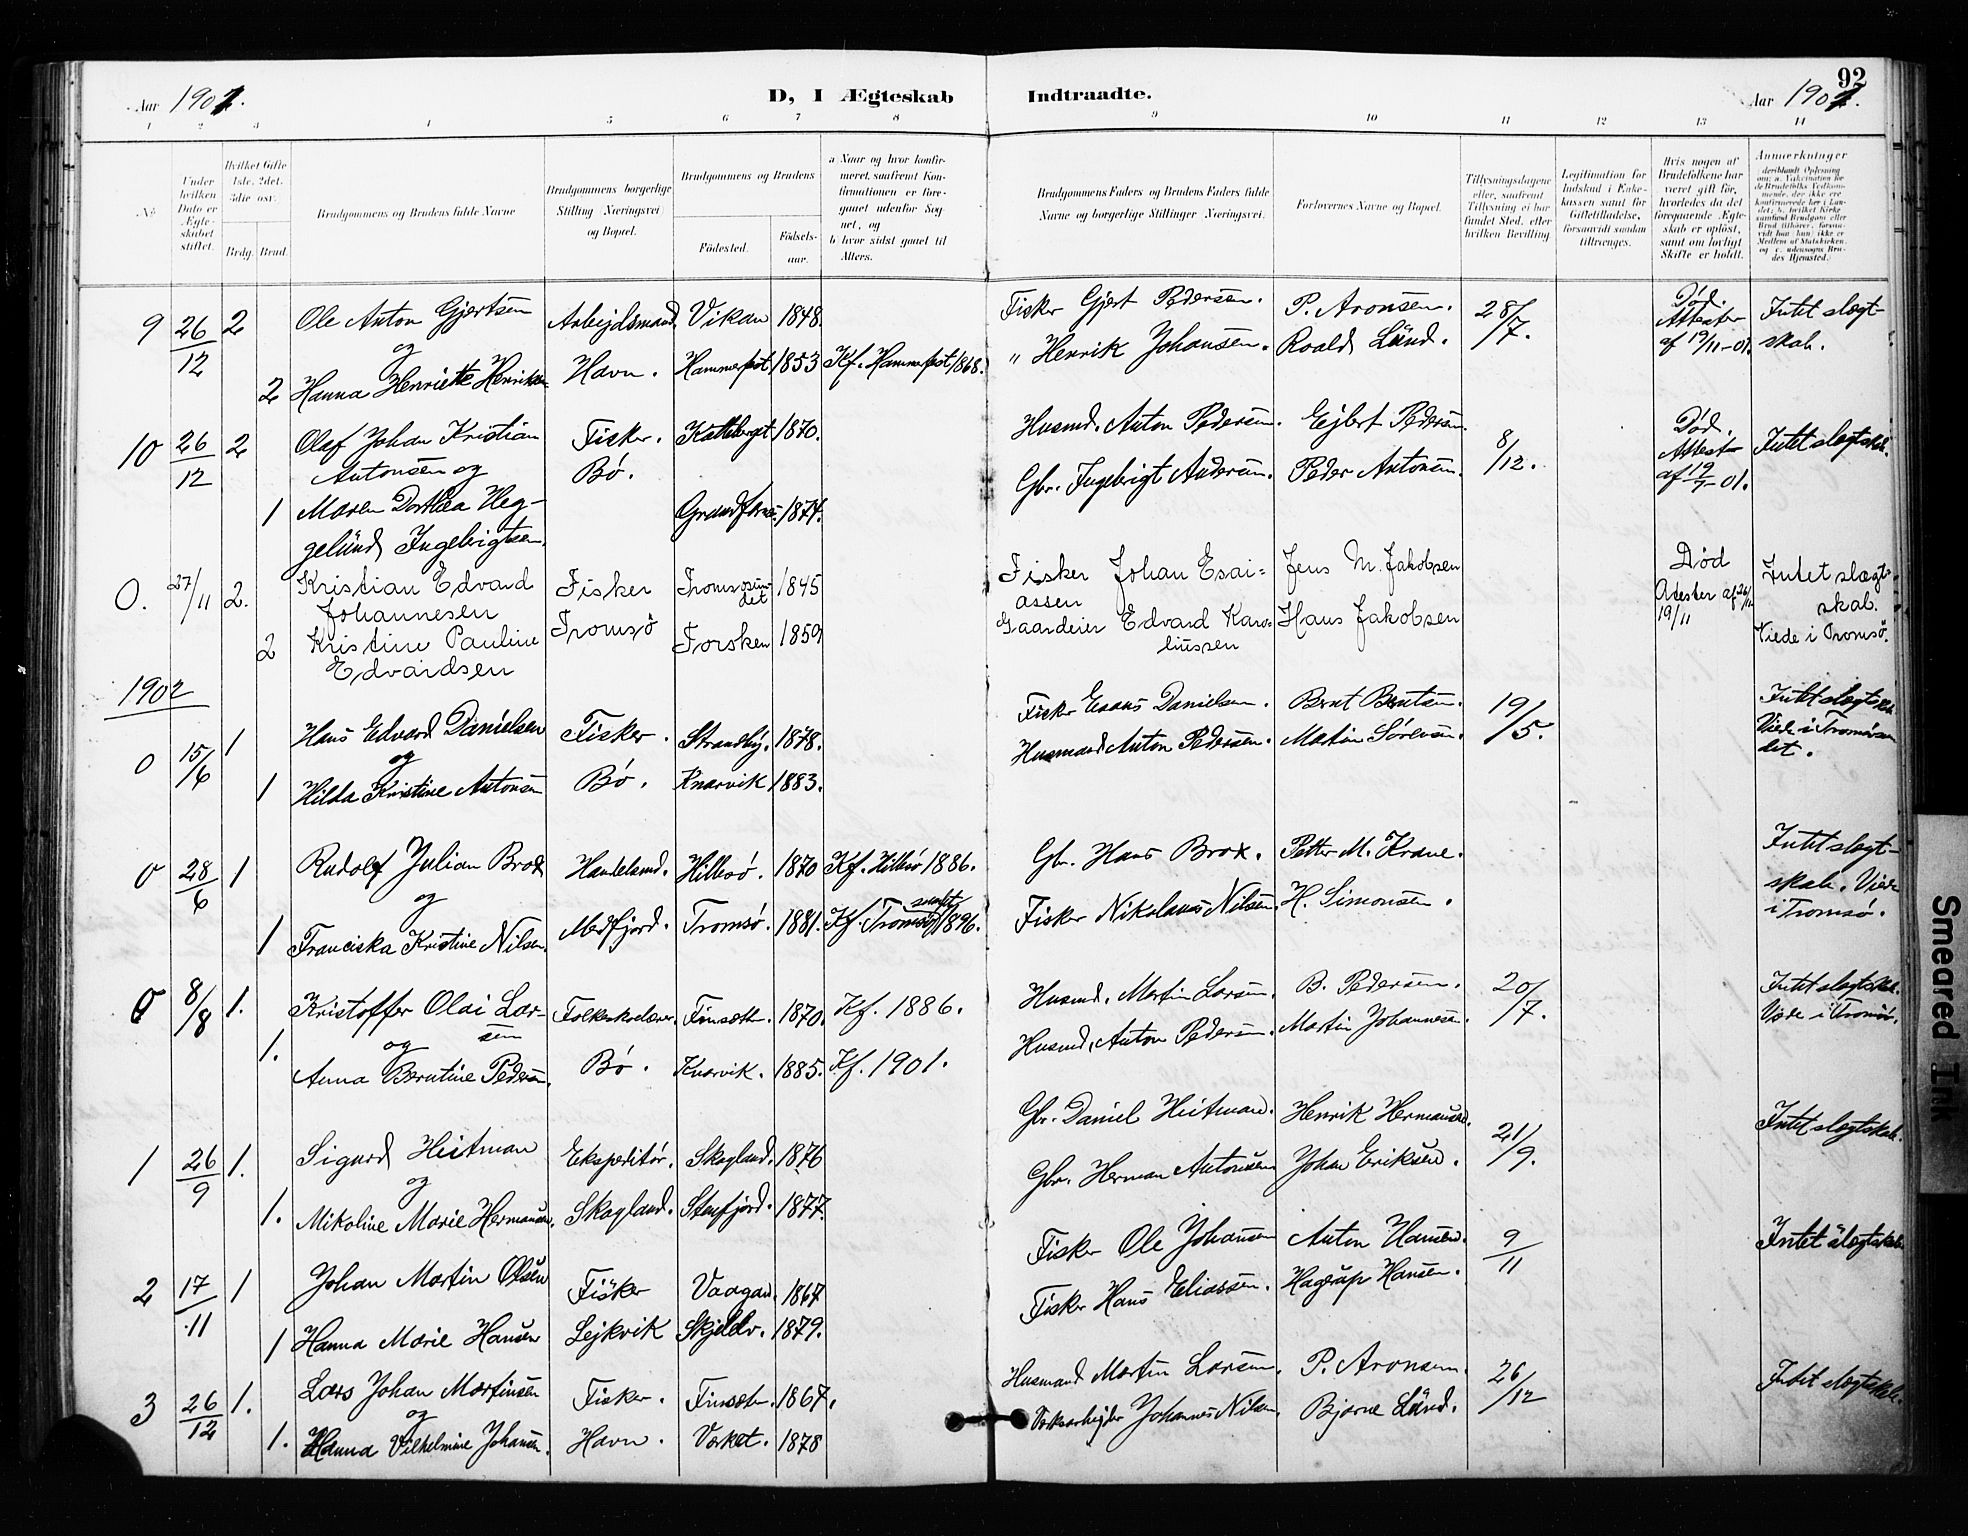 92
Aar 1901.
D, I Ægteskab Indtraadte.
Aar 1901.
1 2 3 4 5 6 7 8 9 10 11 12 13 14
No.
Under hvilken Dato er Ægteskabet stiftet.
Hvilket Gifte 1ste, 2det, 3die osv.
Brdg. Brud.
Brudgommens og Brudens fulde Navne
Brudgommens borgerlige Stilling (Næringsvei) og Bopæl.
Brudgommens og Brudens
Fødested.
Fødselsaar.
a Naar og hvor konfirmeret, saafremt Konfirmationen er foregaaet udenfor Sognet, og
b hvor sidst gaaet til Alters.
Brudgommens Faders og Brudens Faders fulde Navne og borgerlige Stillinger (Næringsvei).
Forlovernes Navne og Bopæl.
Tillysningsdagene eller, saafremt Tillysning ei har fundet Sted, efter hvilken Bevilling
Legitimation for Indskud i Enkekassen samt for Giftetilladelse, forsaavidt saadan tiltrænges.
Hvis nogen af Brudefolkene har været gift før, hvorledes da det foregaaende Ægteskab er opløst, samt om lovligt Skifte er holdt.
Anmerkninger
9 26/12 2 Ole Anton Gjertsen Arbejdsmand Vikan 1848. Fisker Gjert Pedersen. P. Aronsen. 28/7. Død. Attester af 19/11-01. Intet slægtskab.
og
2 Hanna Henriette Henriksen Havn. Hammerfest 1853 Kf. Hammerfest 1868. " Henrik Johansen. Roald Lund.
10 26/12 2 Olaf Johan Kristian Fisker. 1870. Husmd. Anton Pedersen. Ejlert Pedersen. 8/12. Død. Attest af 19/7-01. Intet slægtskab.
Antonsen og Bø.
1 Maren Dorthea Heg- 1874. Gbr. Ingebrigt Andersen. Peder Antonsen.
gelund Ingebrigtsen.
0. 27/11 2. Kristian Edvard Fisker Tromsøsundet 1845 Fisker Johan Esaiassen Jens N. Jakobsen Død Atester af 26/11 19/11 Intet slægtskab.
Johannesen Tromsø
2 Kristine Pauline Torsken 1859 Gaardeier Edvard Karoliussen Hans Jakobsen Viede i Tromsø.
Edvardsen
1902
0 15/6 1 Hans Edvard Danielsen Fisker. Strandby. 1878. Fisker Enans Danielsen. Bernt Berntsen. 19/5. Intet slægtskab. Viede i Tromsøsundet.
og
1 Hilda Kristine Antonsen Bø. Knarvik 1883. Husmand Anton Pedersen. Martin Sørensen.
0 28/6 1 Rudolf Julian Brox Handelsmd. Hillesø. 1870 Kf. Hillesø 1886. Gbr. Hans Brox. Petter M. Krane. Intet slægtskab. Viede i Tromsø.
og
1 Franciska Kristine Nilsen. Medfjord. Tromsø. 1881. Kf. Tromsøsundet 1896. Fisker Nikolaus Nilsen. H. Simonsen.
0 8/8 1. Kristoffer Olai Larsen Folkeskolelærer. Finsæter. 1870. Kf. 1886. Husmd. Martin Larsen. B. Pedersen. 20/7. Intet slægtskab. Viede i Tromsø.
og
1. Anna Berntine Pedersen. Bø. Knarvik. 1885. Kf. 1901. Husmd. Anton Pedersen. Martin Johannesen.
1 26/9 1. Sigurd Heitman Ekspeditør. Skagland. 1876 Gbr. Daniel Heitmand. Henrik Hermansen. 21/9. Intet slægtskab.
og
1. Mikoline Marie Hermansen. Skagland. Stenfjord. 1877. Gbr. Herman Antonsen Johan Eriksen.
2 17/11 1 Johan Martin Olsen Fisker Vaagan. 1867 Fisker Ole Johansen Anton Hansen. 9/11 Intet slægtskab.
1 Hanna Marie Hansen Lejkvik Skjelv. 1879. Fisker Hans Eliassen. Hagerup Hansen.
3 26/12 1. Lars Johan Martinsen Fisker. Finsæter. 1867. Husmand Martin Larsen. P. Aronsen. 26/12 Intet slægtskab.
og
1. Hanna Vilhelmine Johansen. Havn. Verket. 1878 Verksarbejder Johannes Nilsen. Bjarne Lund.
Smeared Ink